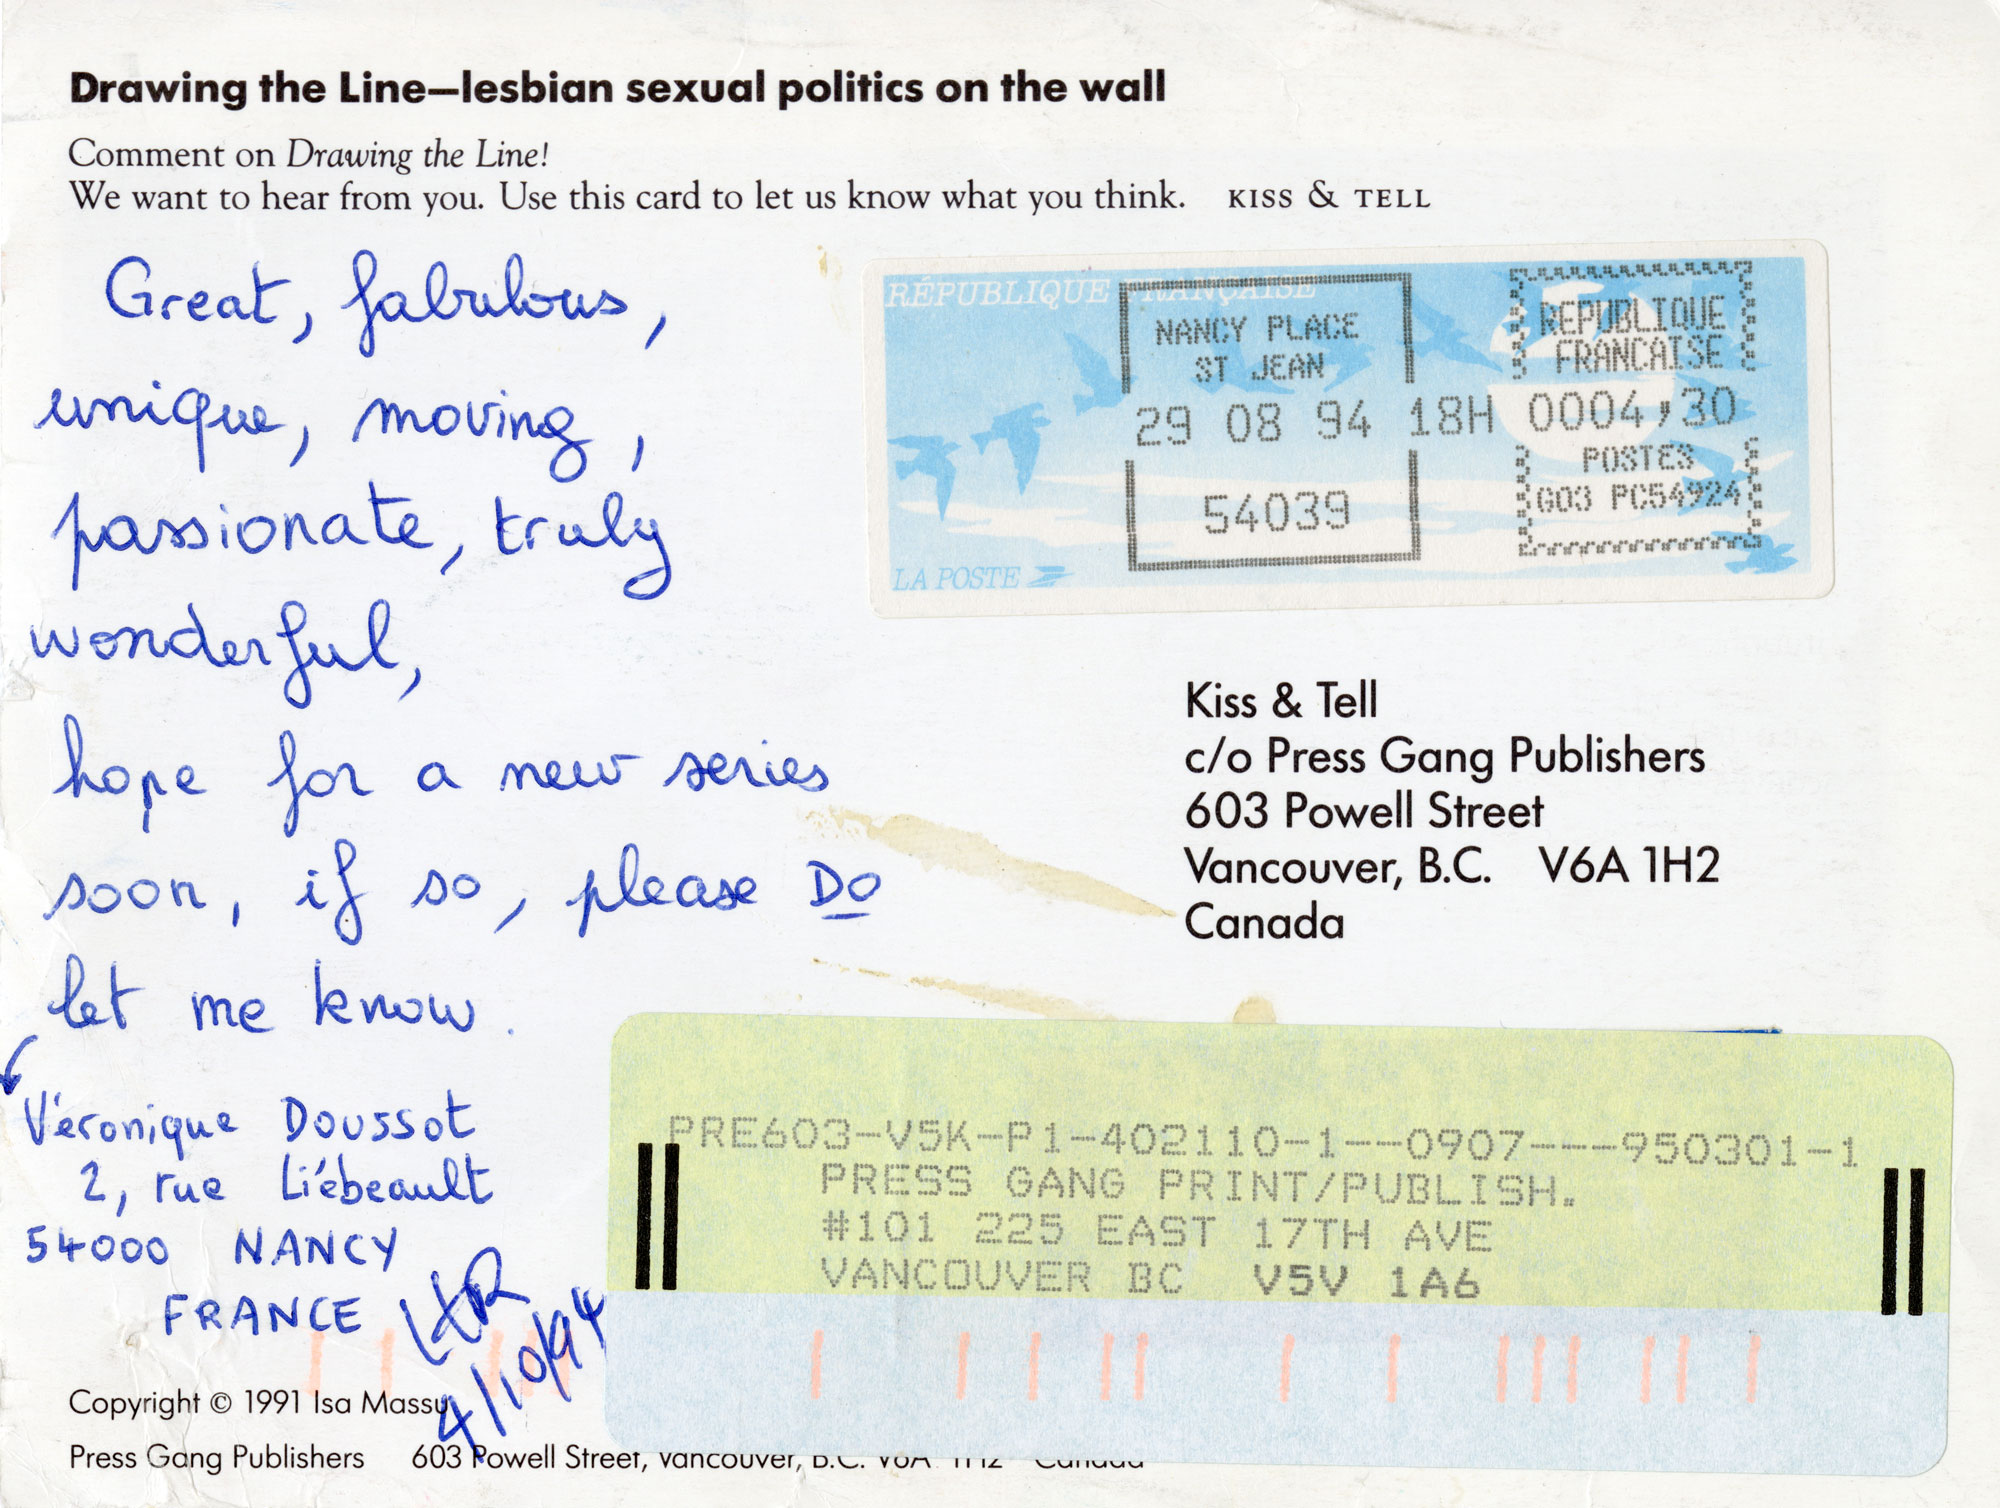 Drawing the Line—lesbian sexual politics on the wall
Comment on Drawing the Line!
We want to hear from you. Use this card to let us know what you think. KISS & TELL
Great, fabulous,
unique, moving,
passionate, truly
wonderful,
hope for a new series
soon, if so, please Do
let me know.
Véronique Doussot
2, rue Liébeault
54000 NANCY
FRANCE
4/10/94
RÉPUBLIQUE FRANÇAISE
NANCY PLACE
ST JEAN
29 08 94 18H
54039
REPUBLIQUE
FRANCAISE
0004,30
POSTES
G03 PC54924
LA POSTE
Kiss & Tell
c/o Press Gang Publishers
603 Powell Street
Vancouver, B.C. V6A 1H2
Canada
PRE603-V5K-P1-402110-1--0907---950301-1
PRESS GANG PRINT/PUBLISH.
#101 225 EAST 17TH AVE
VANCOUVER BC V5V 1A6
Copyright © 1991 Isa Massu
Press Gang Publishers 603 Powell Street, Vancouver, B.C. V6A 1H2 Canada